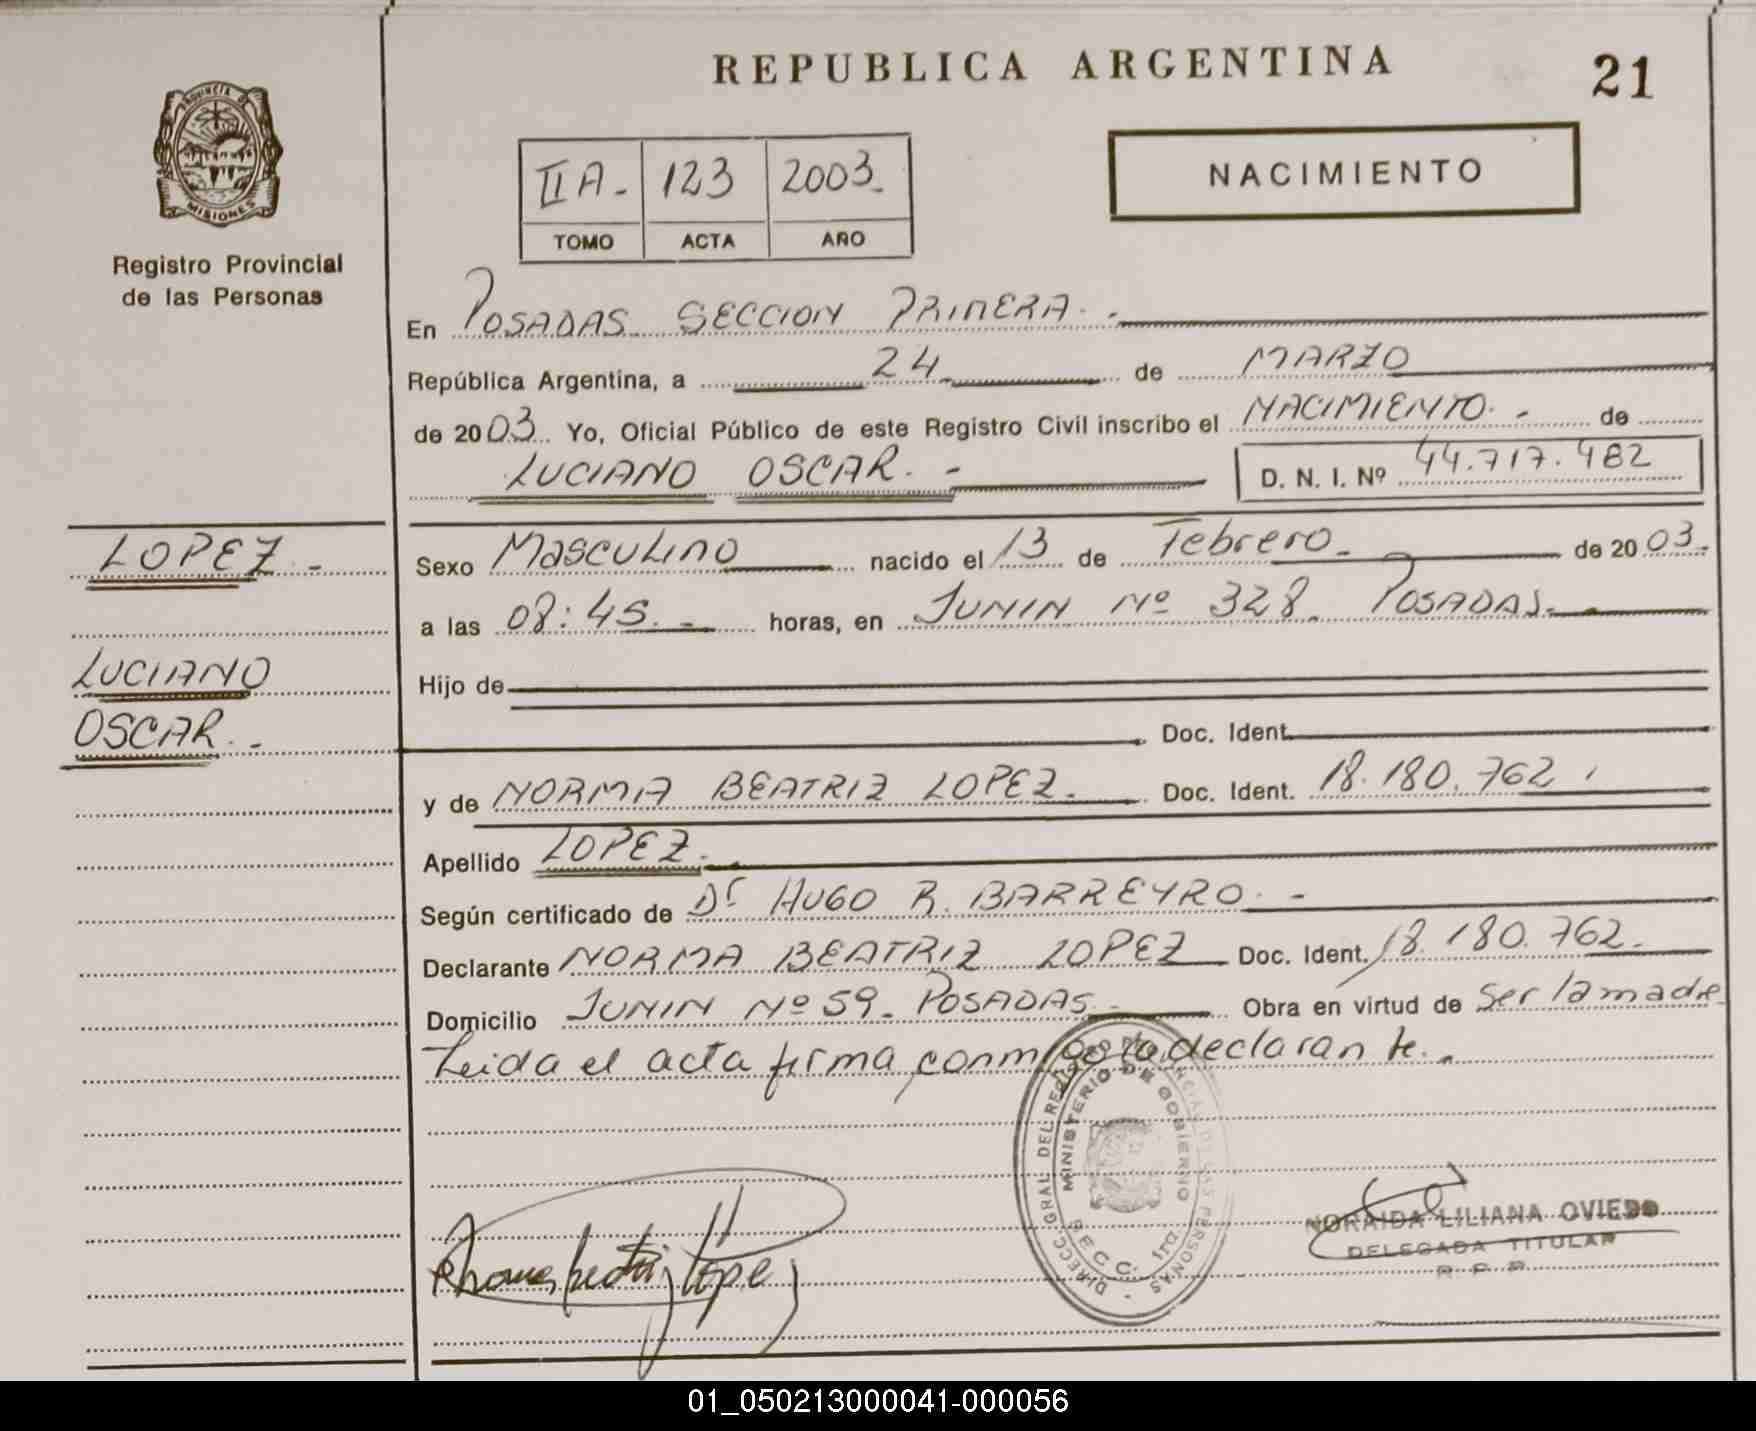 REPUBLICA ARGENTINA
21
PROVINCIA DE
MISIONES
Registro Provincial
de las Personas
II A - 123 2003.
TOMO ACTA AÑO
NACIMIENTO
En POSADAS SECCION PRIMERA. -
República Argentina, a 24 de MARZO
de 2003 Yo, Oficial Público de este Registro Civil inscribo el NACIMIENTO. - de
LUCIANO OSCAR. - D. N. I. Nº 44.717.482
LOPEZ. -
LUCIANO
OSCAR. -
Sexo Masculino nacido el 13 de Febrero - de 2003.
a las 08:45. - horas, en JUNIN Nº 328. POSADAS. -
Hijo de
Doc. Ident.
y de NORMA BEATRIZ LOPEZ. Doc. Ident. 18.180.762
Apellido LOPEZ.
Según certificado de Dr HUGO R. BARREYRO. -
Declarante NORMA BEATRIZ LOPEZ Doc. Ident. 18.180.762.
Domicilio JUNIN Nº 59. POSADAS. Obra en virtud de ser la madre
Leida el acta firma conmigo la declarante. -
DIRECC. GRAL. DEL REGISTRO PROVINCIAL DE LAS PERSONAS -
MINISTERIO DE GOBIERNO
SECC. 1ra
NORAIDA LILIANA OVIEDO
DELEGADA TITULAR
R. P. P.
01_050213000041-000056